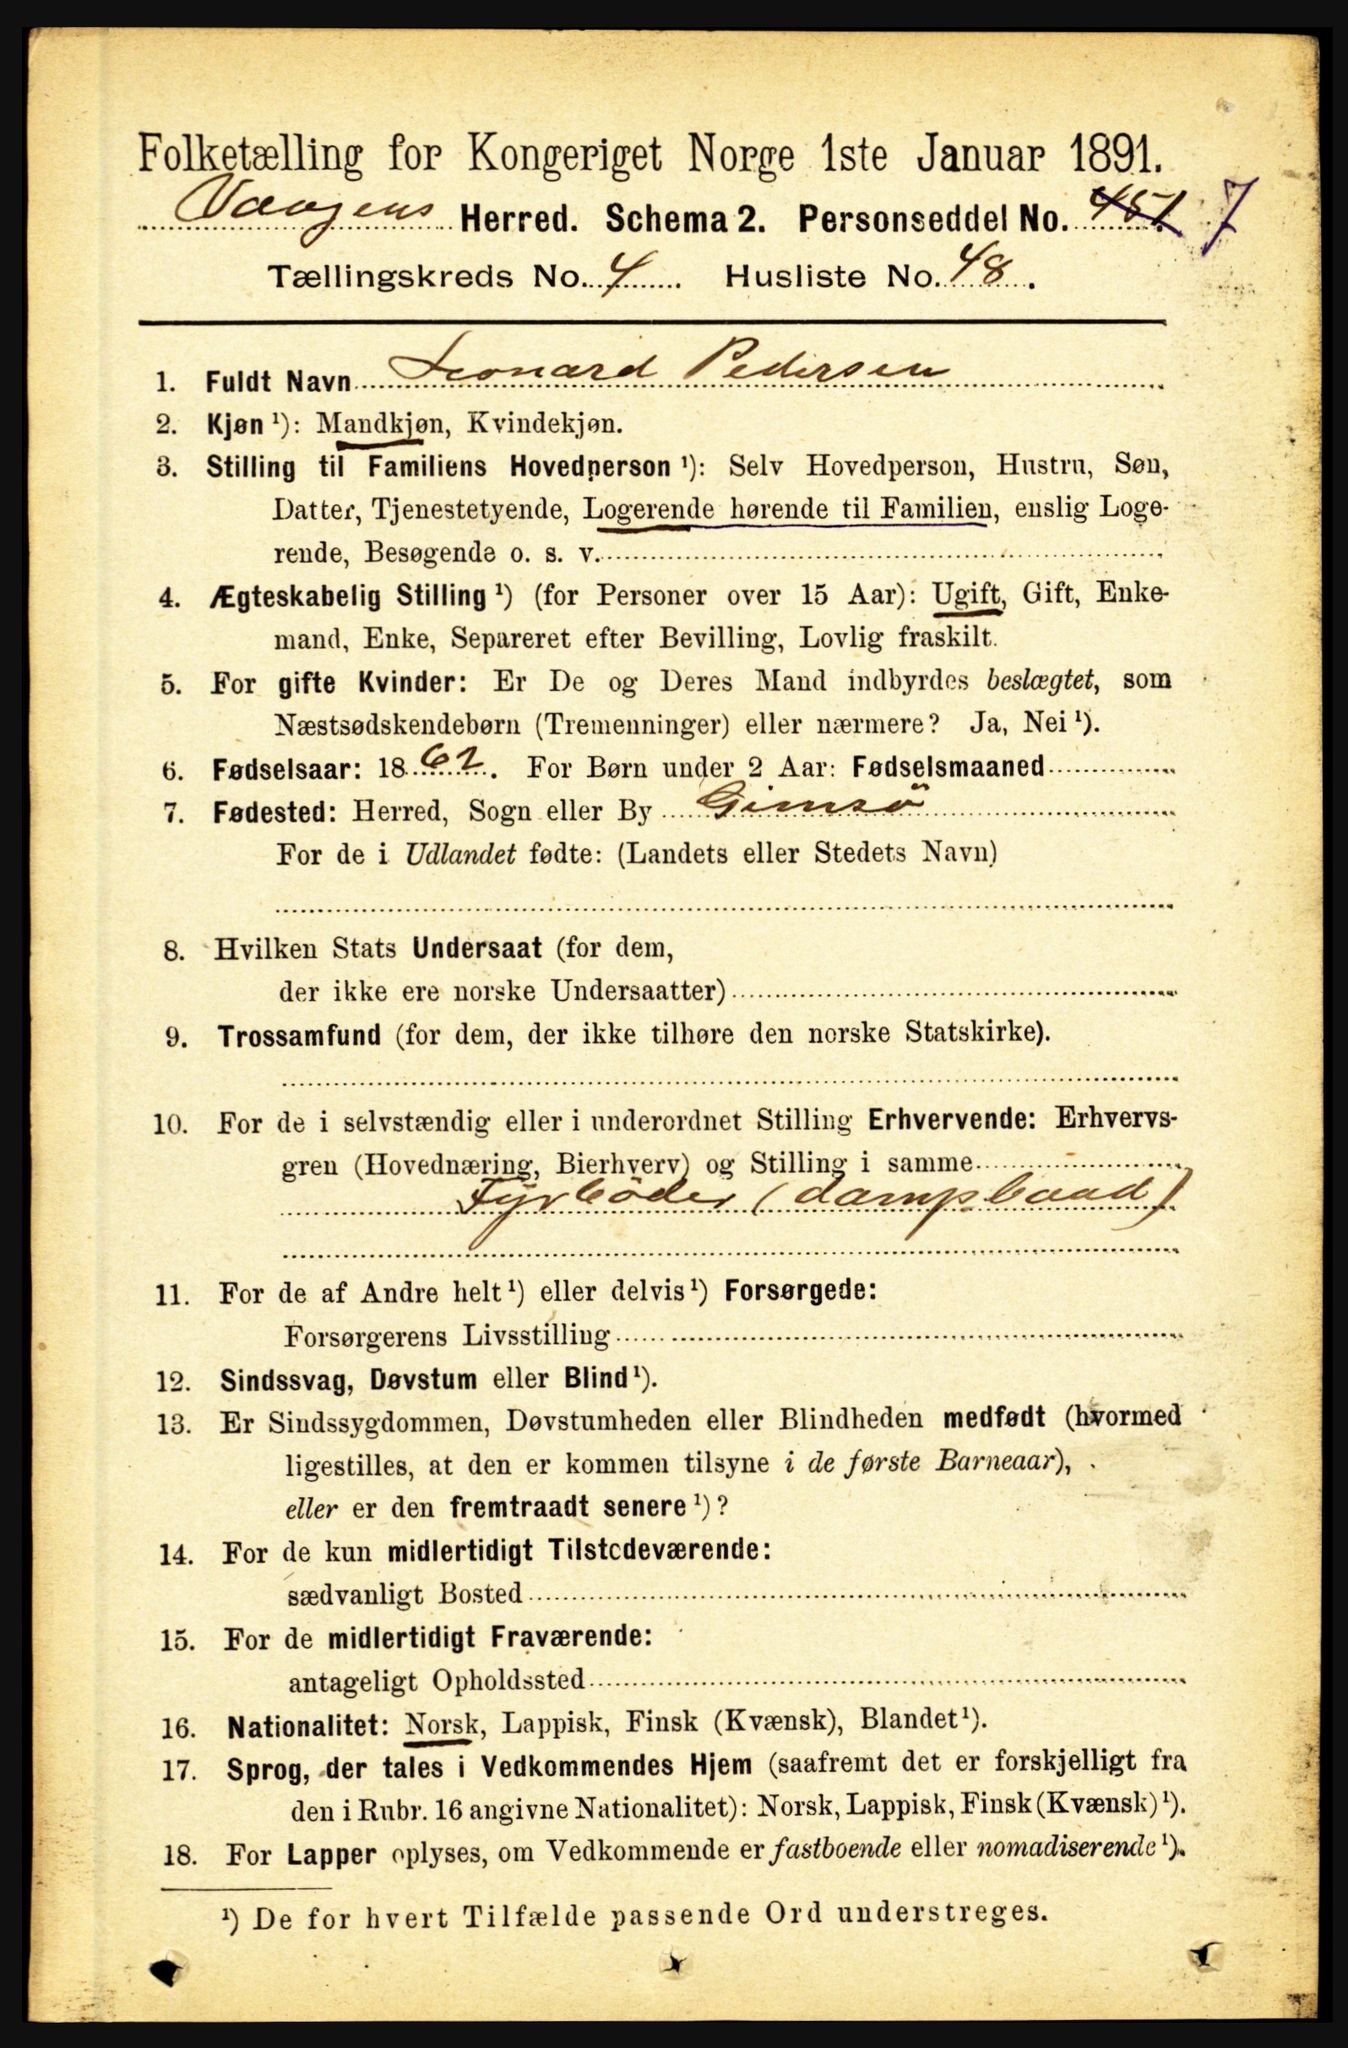 Folketælling for Kongeriget Norge 1ste Januar 1891.
Vaagens Herred. Schema 2. Personseddel No. 451 7
Tællingskreds No. 4 Husliste No. 48.
1. Fuldt Navn Leonard Pedersen
2. Kjøn ¹): Mandkjøn, Kvindekjøn.
3. Stilling til Familiens Hovedperson ¹): Selv Hovedperson, Hustru, Søn,
Datter, Tjenestetyende, Logerende hørende til Familien, enslig Loge-
rende, Besøgende o. s. v.
4. Ægteskabelig Stilling ¹) (for Personer over 15 Aar): Ugift, Gift, Enke-
mand, Enke, Separeret efter Bevilling, Lovlig fraskilt.
5. For gifte Kvinder: Er De og Deres Mand indbyrdes beslægtet, som
Næstsødskendebørn (Tremenninger) eller nærmere? Ja, Nei ¹).
6. Fødselsaar: 1862. For Børn under 2 Aar: Fødselsmaaned
7. Fødested: Herred, Sogn eller By Gimsö
For de i Udlandet fødte: (Landets eller Stedets Navn)
8. Hvilken Stats Undersaat (for dem,
der ikke ere norske Undersaatter)
9. Trossamfund (for dem, der ikke tilhøre den norske Statskirke).
10. For de i selvstændig eller i underordnet Stilling Erhvervende: Erhvervs-
gren (Hovednæring, Bierhverv) og Stilling i samme
Fyrböder (dampbaad)
11. For de af Andre helt ¹) eller delvis ¹) Forsørgede:
Forsørgerens Livsstilling
12. Sindssvag, Døvstum eller Blind ¹).
13. Er Sindssygdommen, Døvstumheden eller Blindheden medfødt (hvormed
ligestilles, at den er kommen tilsyne i de første Barneaar),
eller er den fremtraadt senere ¹)?
14. For de kun midlertidigt Tilstedeværende:
sædvanligt Bosted
15. For de midlertidigt Fraværende:
antageligt Opholdssted
16. Nationalitet: Norsk, Lappisk, Finsk (Kvænsk), Blandet ¹).
17. Sprog, der tales i Vedkommendes Hjem (saafremt det er forskjelligt fra
den i Rubr. 16 angivne Nationalitet): Norsk, Lappisk, Finsk (Kvænsk) ¹).
18. For Lapper oplyses, om Vedkommende er fastboende eller nomadiserende ¹).
¹) De for hvert Tilfælde passende Ord understreges.